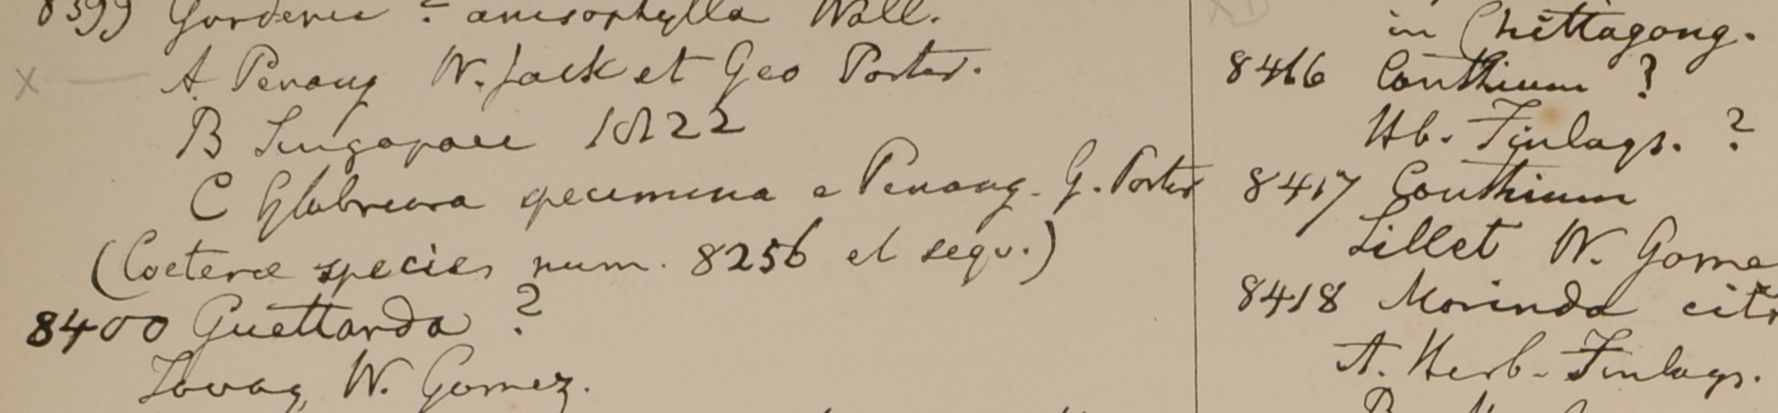 8399 Gardenia ? anisophylla Wall.
A Penang W. Jack et Geo Porter.
B Singapore 1822
C Glabriora specimina e Penang. G. Porter
(Coeterae species num. 8256 et sequ.)
8400 Guettarda ?
Tavoy, W. Gomez.
in Chittagong.
8416 Canthium ?
Hb. Finlays. ?
8417 Canthium
Sillet W. Gome
8418 Morinda citr
A. Herb. Finlays.